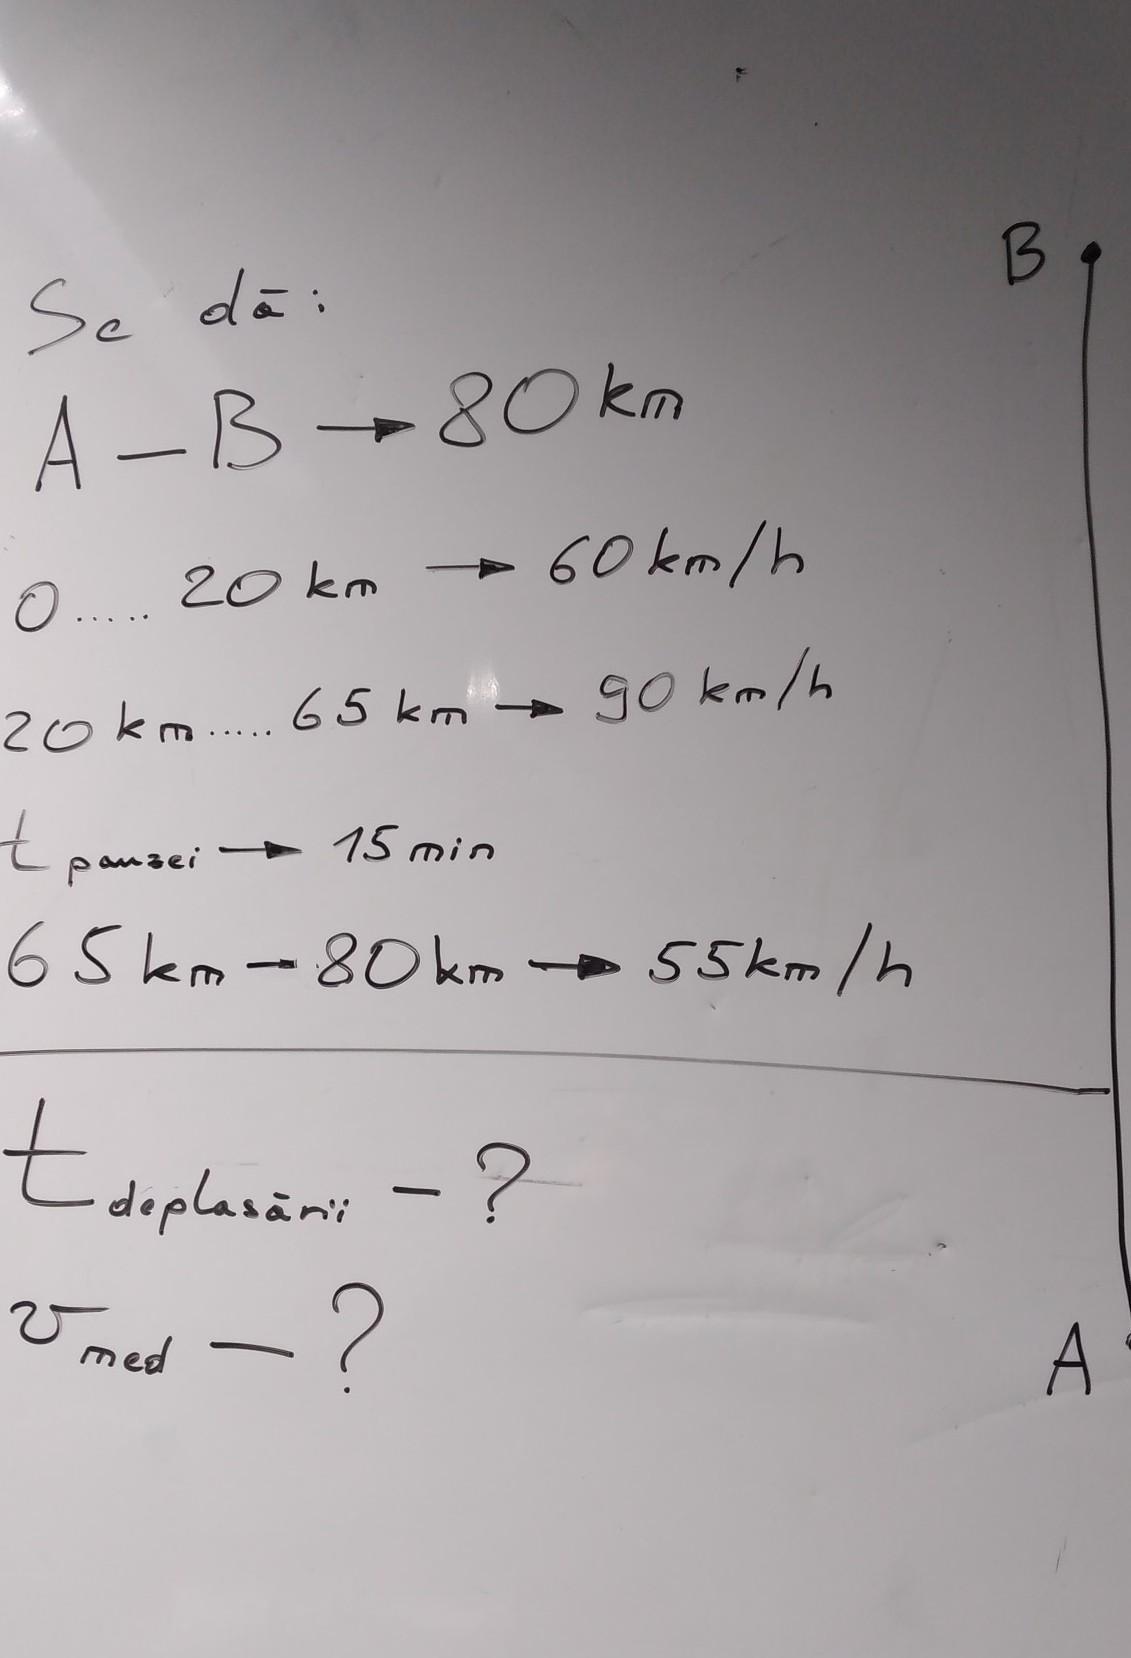 Se dă:
A – B → 80 km
0..... 20 km → 60 km/h
20 km..... 65 km → 90 km/h
t pauzei → 15 min
65 km – 80 km → 55 km/h
t deplasării – ?
v med – ?
B
A